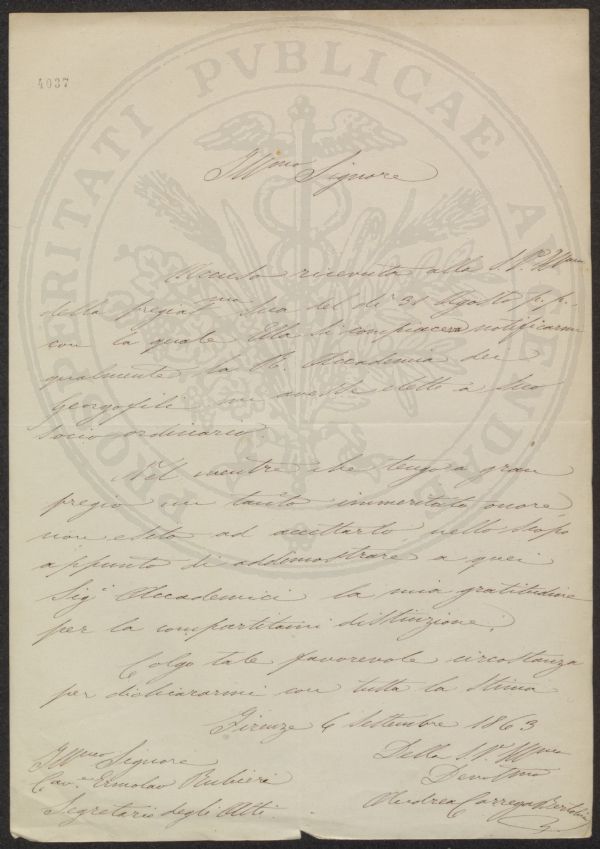 4037
PROSPERITATI PVBLICAE AVGENDAE
Ill.mo Signore
Accuso ricevuta alla S.V. Ill.ma
della pregiat.ma Sua del dì 31 Agosto p.p.
con la quale Ella si compiaceva notificarmi
qualmente la R. Accademia dei
Georgofili mi avesse eletto a suo
socio ordinario.
Nel mentre che tengo a gran
pregio un tanto immeritato onore,
non esito ad accettarlo nello scopo
appunto di addimostrare a quei
Sig.i Accademici la mia gratitudine
per la compartitami distinzione.
Colgo tale favorevole circostanza
per dichiararmi con tutta la stima
Firenze 6 Settembre 1863
Della S.V. Ill.ma
Dev.mo
Andrea Carrega Bertolini
Ill.mo Signore
Cav.e Ermolao Rubieri
Segretario degli Atti.